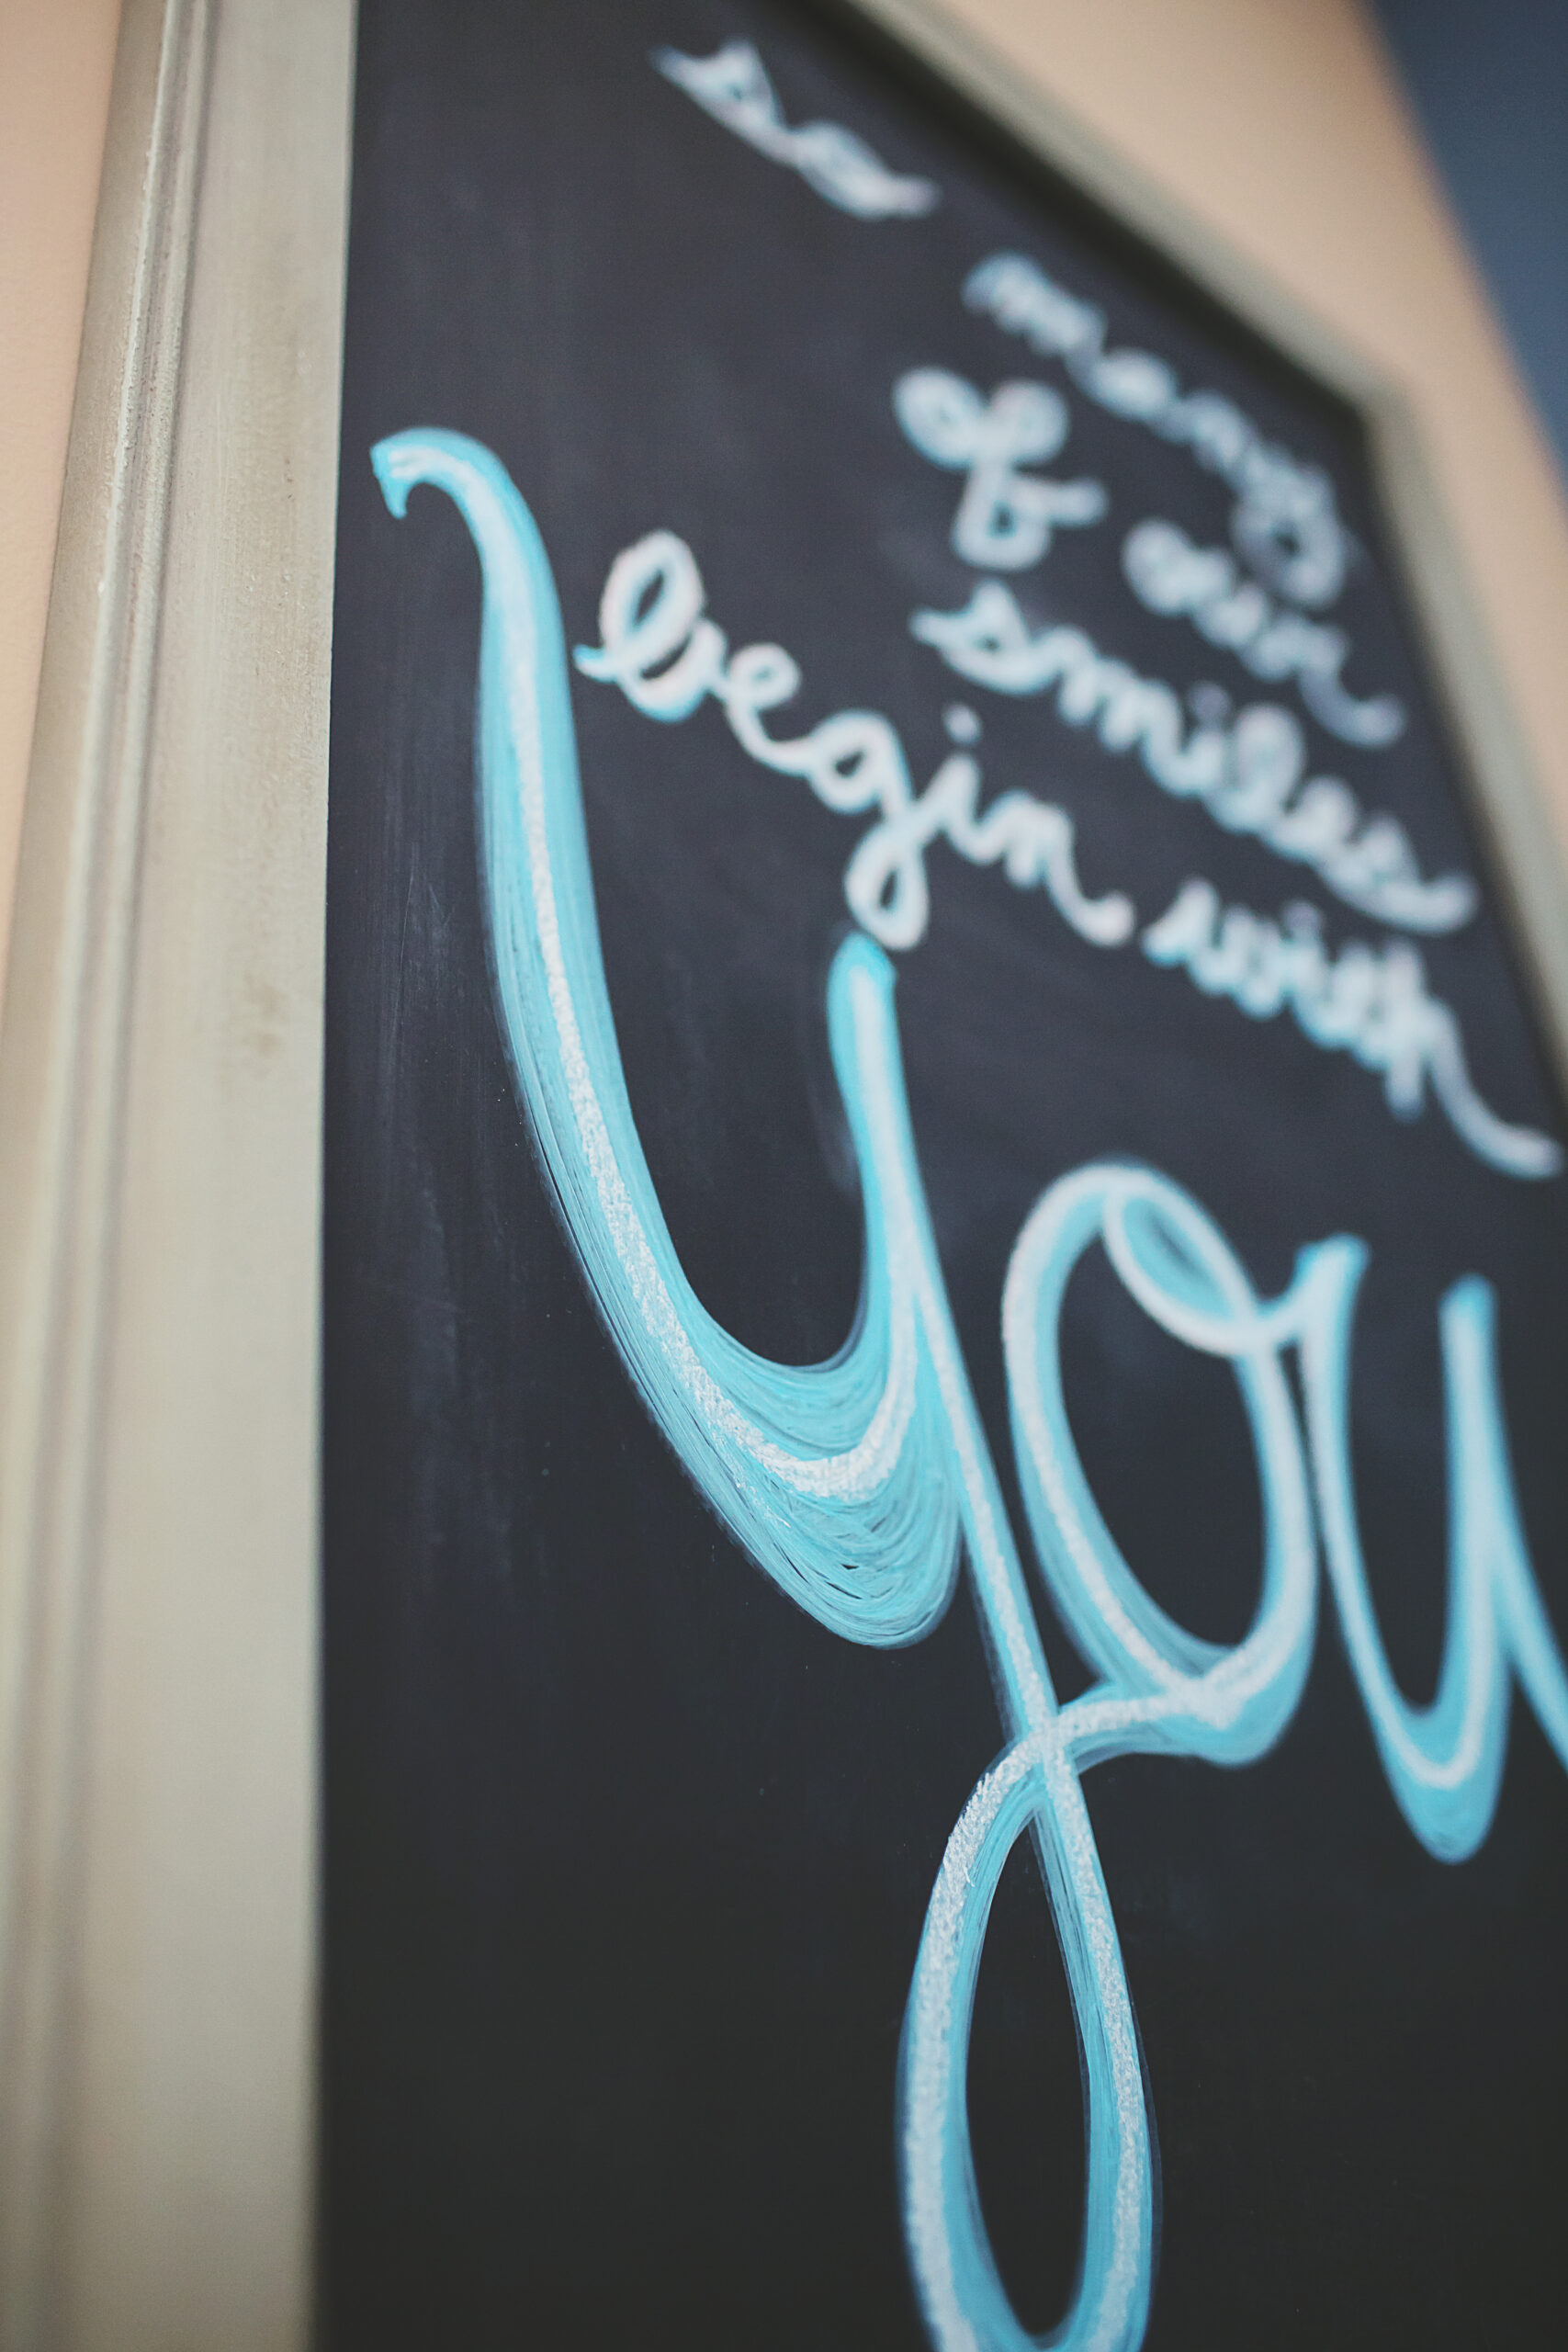 so many
of our
smiles
begin with
you